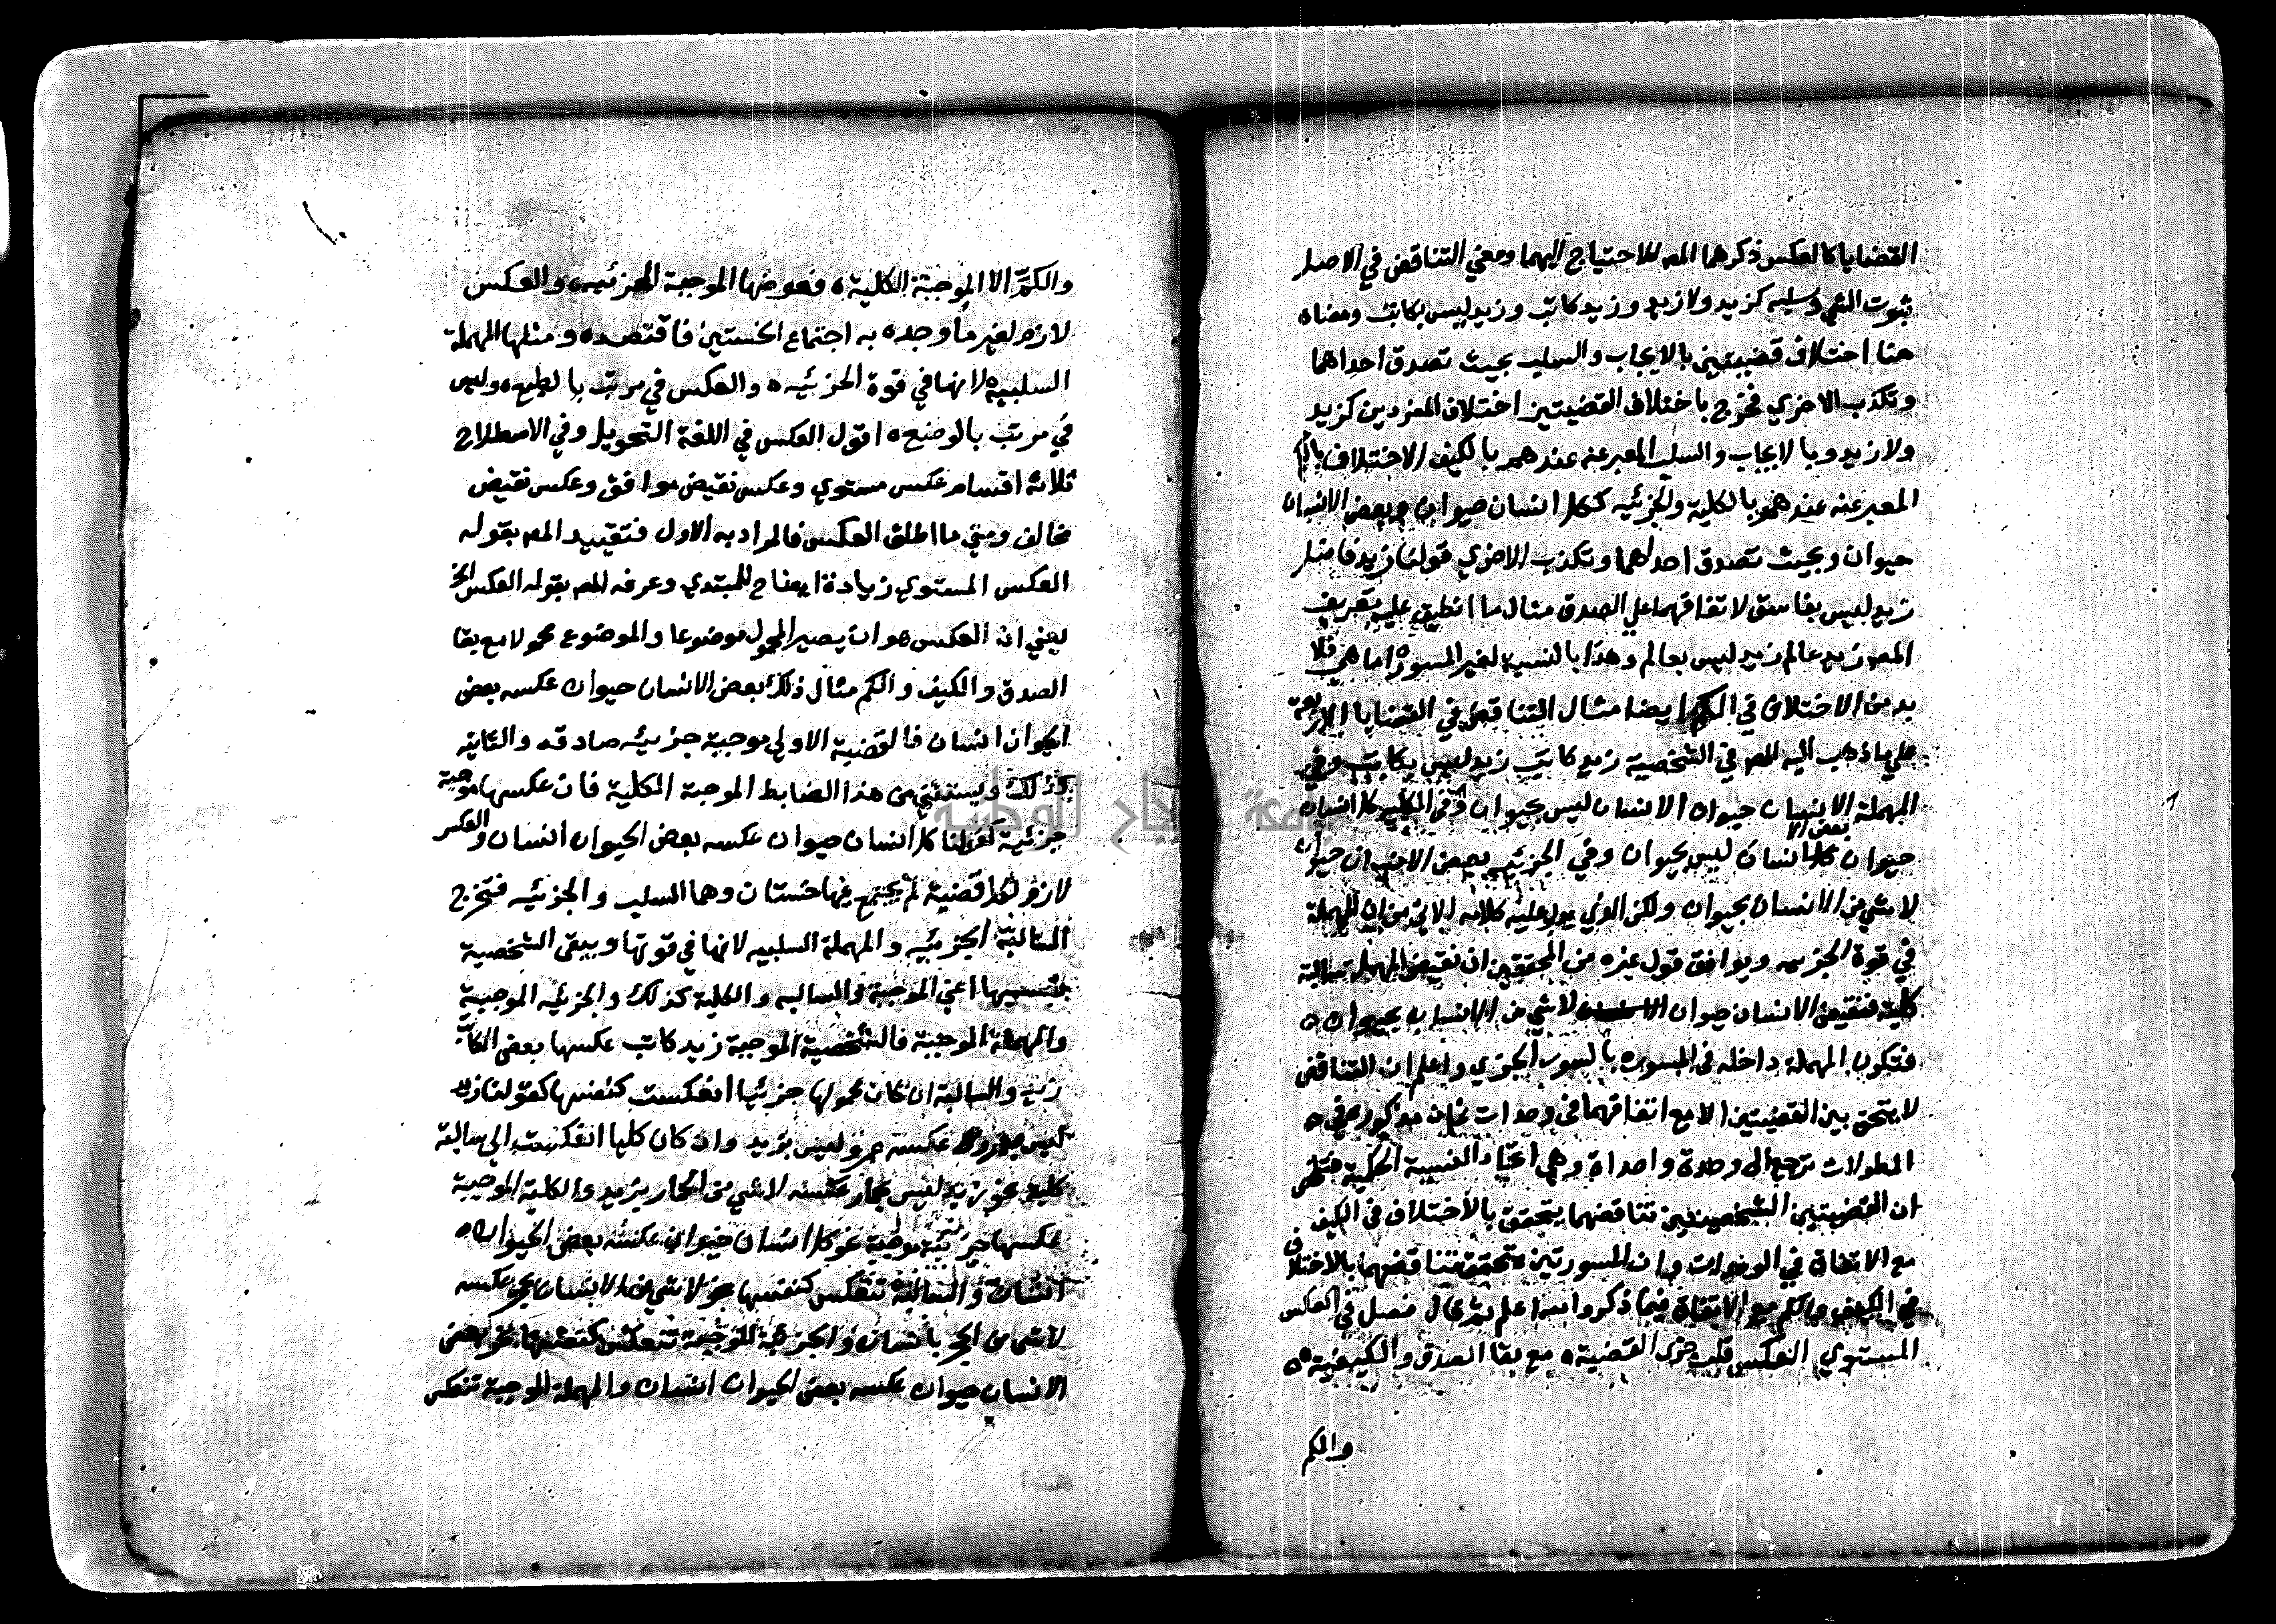 القضايا كالعكس ذكرهما المص للاحتياج اليهما ومعني التناقض في الاصل
ثبوت الشي وسلبه كزيد ولا زيد وزيد كاتب وزيد ليس بكاتب ومعناه
هنا اختلاف قضيتين بالايجاب والسلب بحيث تصدق احداهما
وتكذب الاخري فخرج باختلاف القضيتين اختلاف المفردين كزيد
ولا زيد وبالايجاب والسلب المعبر عنه عندهم بالكيف الاختلاف بالكم
المعبر عنه عندهم بالكلية والجزئيه ككل انسان حيوان وبعض الانسان
حيوان وبحيث تصدق احداهما وتكذب الاخري قولنا زيد فاضل
زيد ليس بفاسق لاتفاقهما علي الصدق مثال ما انطبق عليه تعريف
المص زيد عالم زيد ليس بعالم وهذا بالنسبه لغير المسوره اما هي فلا
بد من الاختلاف في الكم ايضا مثال التناقض في القضايا الاربعة
علي ما ذهب اليه المص في الشخصية زيد كاتب زيد ليس بكاتب وفي
المهملة الانسان حيوان الانسان ليس بحيوان وفي الكليه كل انسان
حيوان بعض الانسان ليس بحيوان وفي الجزئيه بعض الانسان حيوان
لا شي من الانسان بحيوان ولكن الذي يدل عليه كلامه الاتي من ان المهملة
في قوة الجزييه ويوافق قول غيره من المحققين ان نقيض المهملة سالبة
كلية فنقيض الانسان حيوان لا شي من الانسان بحيوان
فتكون المهملة داخله في المسوره بالسور الجزي واعلم ان التناقض
لا يتحقق بين القضيتين الا مع اتفاقهما في وحدات ثمان مذكوره في
المطولات ترجع الي وحدة واحداة وهي اتحاد النسبية الحكمية فظهر
ان القضيتين الشخصيتين تناقضهما يتحقق بالاختلاف في الكيف
مع الاتفاق في الوحدات وان المسورتين يتحقق تناقضهما بالاختلاف
في الكيف والكم مع الاتفاق فيما ذكر والله اعلم ثم قال فصل في العكس
المستوي العكس قلب جزي القضية مع بقا الصدق والكيفية
والكم
والكم الا الموجبة الكلية فعوضها الموجبة الجزئيه والعكس
لازم لغير ما وجد به اجتماع الخستين فاقتصد ومثلها المهملة
السلبيه لانها في قوة الجزئيه والعكس في مرتب بالطبع وليس
في مرتب بالوضع اقول العكس في اللغة التحويل وفي الاصطلاح
ثلاثة اقسام عكس مستوي وعكس نقيض موافق وعكس نقيض
مخالف ومتي ما اطلق العكس فالمراد به الاول فتقييد المص بقوله
العكس المستوي زيادة ايضاح للمبتدي وعرفه المص بقوله العكس الخ
يعني ان العكس هو ان يصير المحمول موضوعا والموضوع محمولا مع بقا
الصدق والكيف والكم مثال ذلك بعض الانسان حيوان عكسه بعض
الحيوان انسان فالقضية الاولي موجبة جزئيه صادقه والثانيه
كذلك ويستثني من هذا الضابط الموجبة الكلية فان عكسها موجبة
جزئية كقولنا كل انسان حيوان عكسه بعض الحيوان انسان والعكس
لازم لكل قضية لم يجتمع فيها خستان وهما السلب والجزئيه فتخرج
السالبة الجزئيه والمهملة السلبيه لانها في قوتها ويبقي الشخصية
بقسميها اعني الموجبة والسالبه والكلية كذلك والجزئيه الموجبة
والمهملة الموجبة فالشخصية الموجبة زيد كاتب عكسها بعض الكاتب
زيد والسالبة ان كان محمولها جزئيا انعكست كنفسها كقولنا زيد
ليس عمروا عكسه عمرو ليس بزيد وان كان كليا انعكست الي سالبة
كلية نحو زيد ليس بحمار عكسه لا شي من الحمار بزيد والكلية الموجبة
عكسها جزئية موجبة نحو كل انسان حيوان عكسه بعض الحيوان
انسان والسالبة تنعكس كنفسها نحو لا شي من الانسان بحجر عكسه
لا شي من الحجر بانسان والجزئية الموجبة تنعكس كنفسها نحو بعض
الانسان حيوان عكسه بعض الحيوان انسان والمهملة الموجبة تنعكس